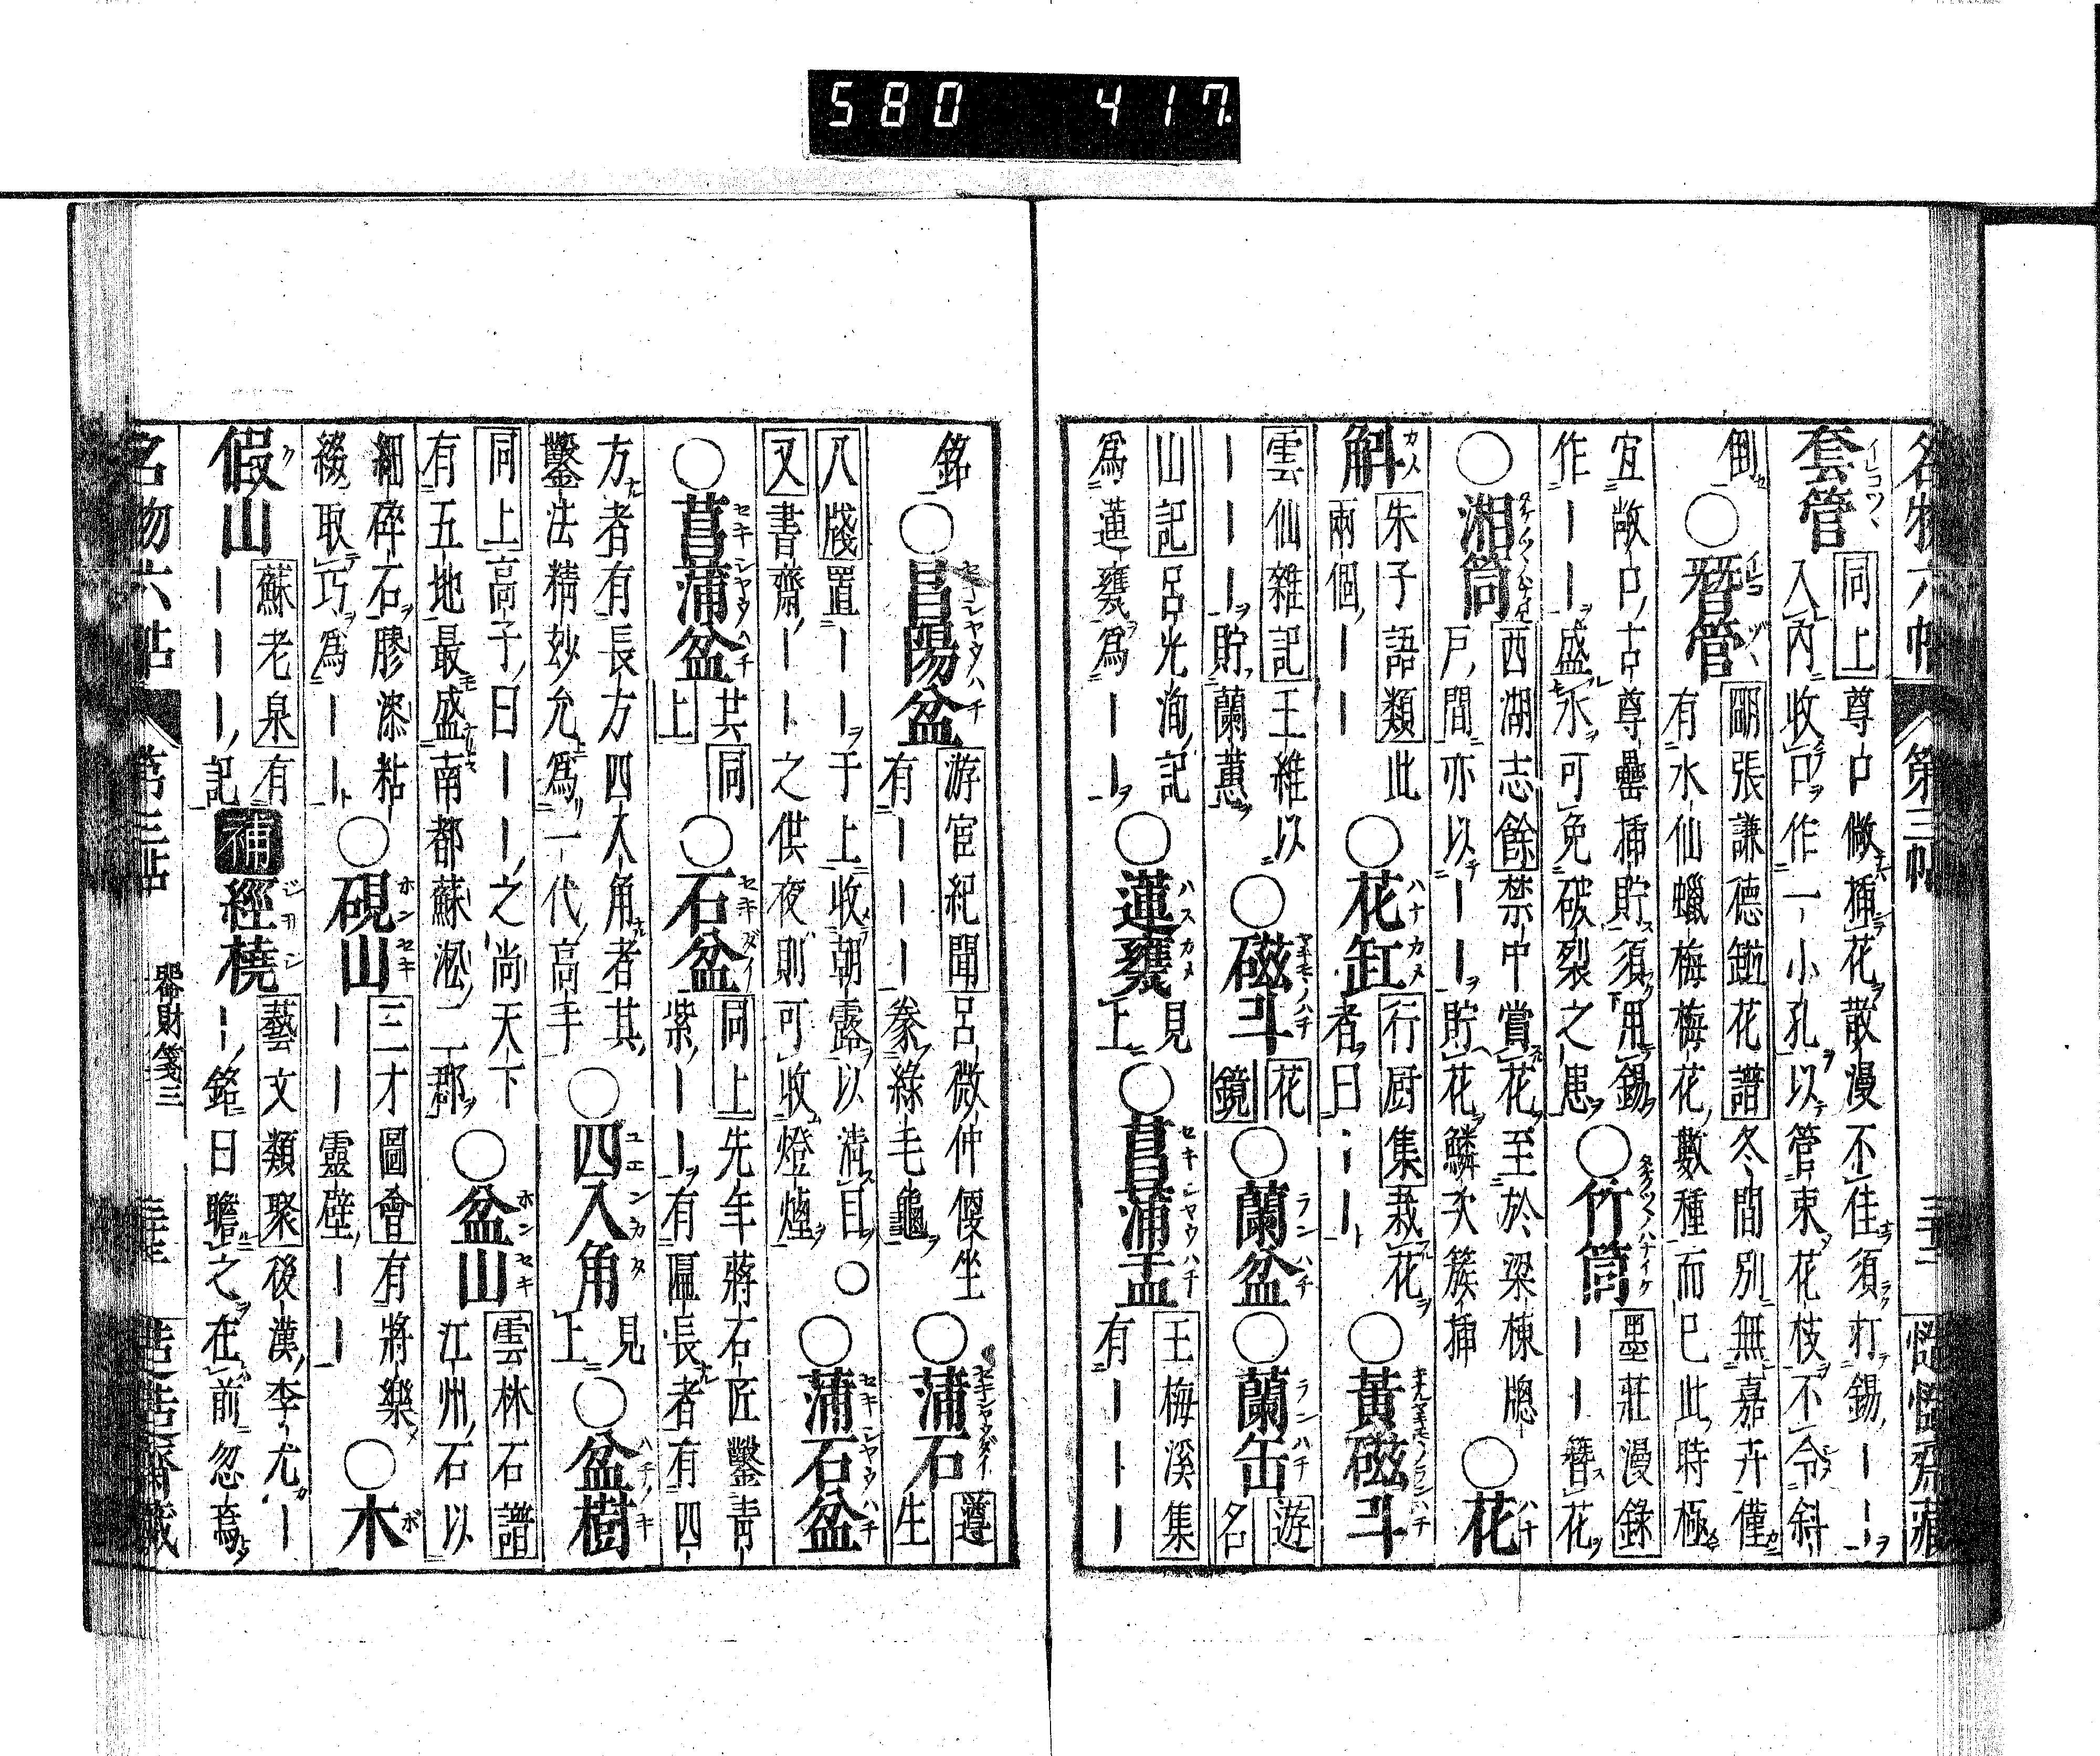 580 417
名物六帖 第三帖 三十二 𢡟𢡟齋藏
套管 同上 尊口僘插花散漫不佳須打錫一一
入內收口作一小孔以管束花枝不令斜
倒 ○暦管 瓶張謙德缾花譜 冬間別無嘉卉僅
有水仙蠟梅梅花數種而巳此時極
宜敞口古尊罍插貯須用錫
作一一盛水可免破裂之患 ○竹筒 墨莊漫錄 一一簪花
○湘筒 西湖志餘 禁中賞花至於梁棟牕
戶間亦以一一貯花鱗次簇插 ○花
斛 朱子語類 此
兩個一一 ○花缸 行厨集 栽花
者曰一一 ○黃磁斗
雲仙雜記 王維以
一一一貯蘭蕙 ○磁斗 花鏡 ○蘭盆 ○蘭缶 遊名
山記 呂光洵記
爲蓮甕爲一一 ○蓮甕 見上 ○菖蒲盂 王梅溪集
有一一一
銘 ○昌陽盆 游宦紀聞 呂微仲傁坐
有一一一豢綠毛龜 ○蒲石 遵生
八牋 置一一于上收朝露以淸目○
又 書齋一一之供夜則可收燈煙 ○蒲石盆
○菖蒲盆 共同上 ○石盆 同上 先年蔣石匠鑿靑
紫一一有匾長者有四
方者有長方四入角者其
鑿法精妙允爲一代高手 ○四入角 見上 ○盆樹
同上 高子曰一一之尚天下
有五地最盛南都蘇淞二郡 ○盆山 雲林石譜
江州石以
細碎石膠漆粘
綴取巧爲一一 ○硯山 三才圖會 有將樂
一一靈壁一一 ○木
假山 蘇老泉 有
一一一記 補 經橈 藝文類聚 後漢李尤一
一銘曰瞻之在前忽焉
名物六帖 第三帖 器財箋三